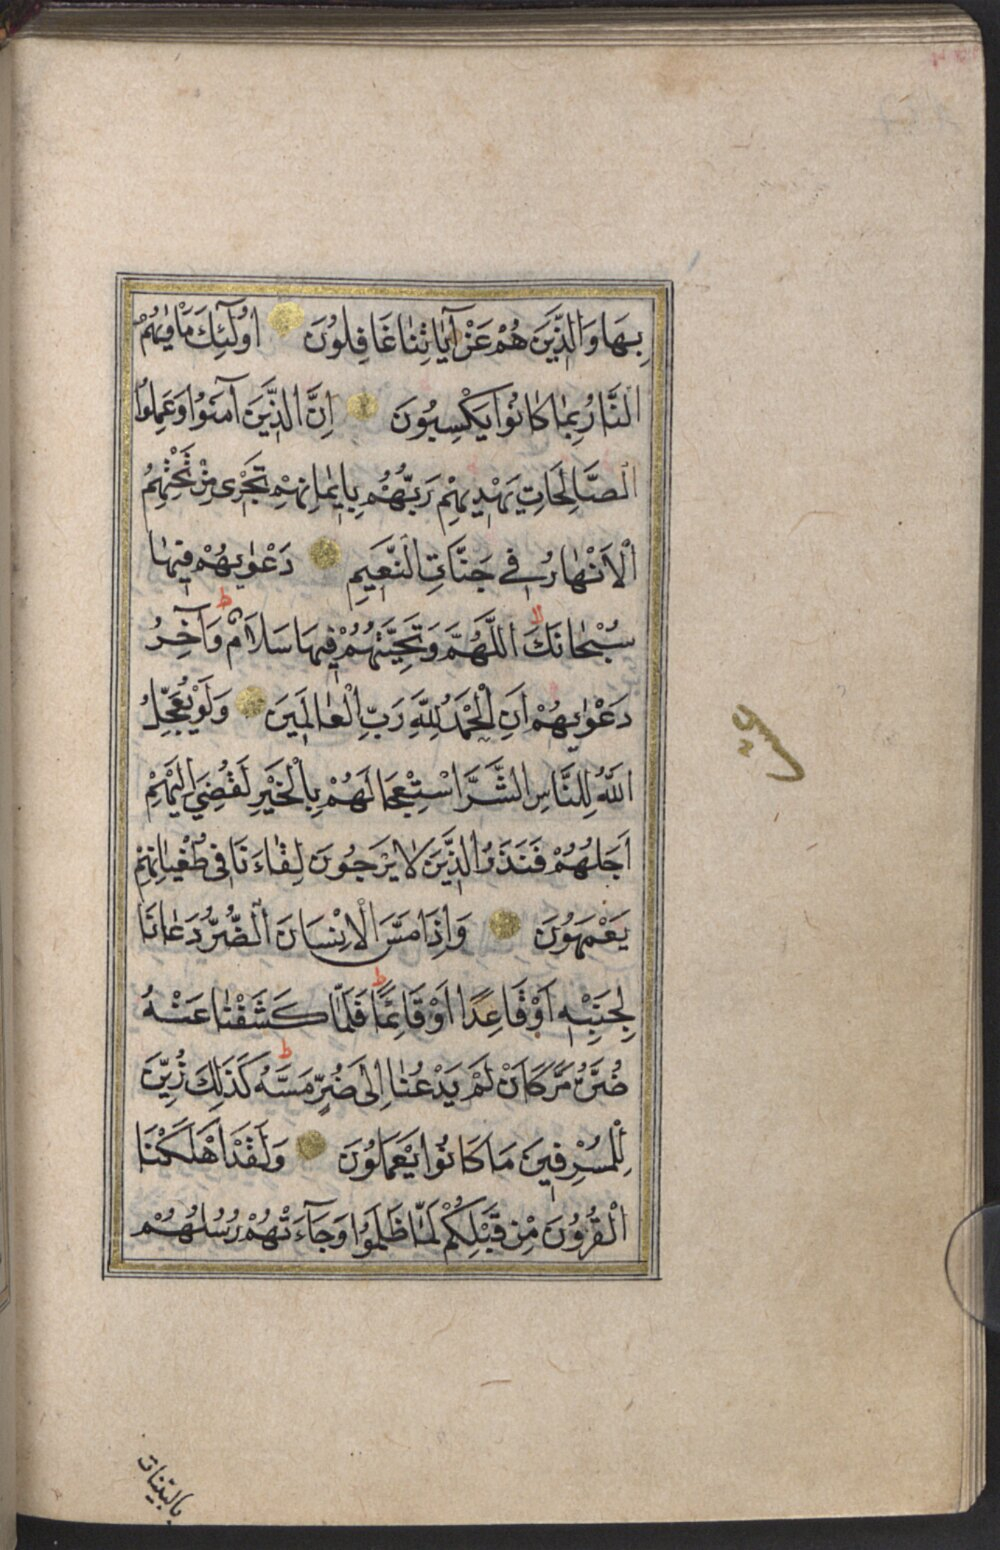 بِهَا وَالَّذِينَ هُمْ عَنْ آيَاتِنَا غَافِلُونَ اُولٰٓئِكَ مَأْوٰيهُمُ
النَّارُ بِمَا كَانُوا يَكْسِبُونَ اِنَّ الَّذِينَ آمَنُوا وَعَمِلُوا
الصَّالِحَاتِ يَهْدِيهِمْ رَبُّهُمْ بِاِيمَانِهِمْ تَجْرِى مِنْ تَحْتِهِمُ
الْاَنْهَارُ فِي جَنَّاتِ النَّعِيمِ دَعْوٰيهُمْ فِيهَا
سُبْحَانَكَ اللَّهُمَّ وَتَحِيَّتُهُمْ فِيهَا سَلَامٌ وَآخِرُ
دَعْوٰيهُمْ اَنِ الْحَمْدُ لِلّٰهِ رَبِّ الْعَالَمِينَ وَلَوْ يُعَجِّلُ
اللّٰهُ لِلنَّاسِ الشَّرَّ اسْتِعْجَالَهُمْ بِالْخَيْرِ لَقُضِيَ اِلَيْهِمْ
اَجَلُهُمْ فَنَذَرُ الَّذِينَ لَا يَرْجُونَ لِقَاءَنَا فِى طُغْيَانِهِمْ
يَعْمَهُونَ وَاِذَا مَسَّ الْاِنْسَانَ الضُّرُّ دَعَانَا
لِجَنْبِهِ اَوْ قَاعِدًا اَوْ قَائِمًا فَلَمَّا كَشَفْنَا عَنْهُ
ضُرَّهُ مَرَّ كَاَنْ لَمْ يَدْعُنَا اِلٰى ضُرٍّ مَسَّهُ كَذٰلِكَ زُيِّنَ
لِلْمُسْرِفِينَ مَا كَانُوا يَعْمَلُونَ وَلَقَدْ اَهْلَكْنَا
الْقُرُونَ مِنْ قَبْلِكُمْ لَمَّا ظَلَمُوا وَجَآءَتْهُمْ رُسُلُهُمْ
بالبينات